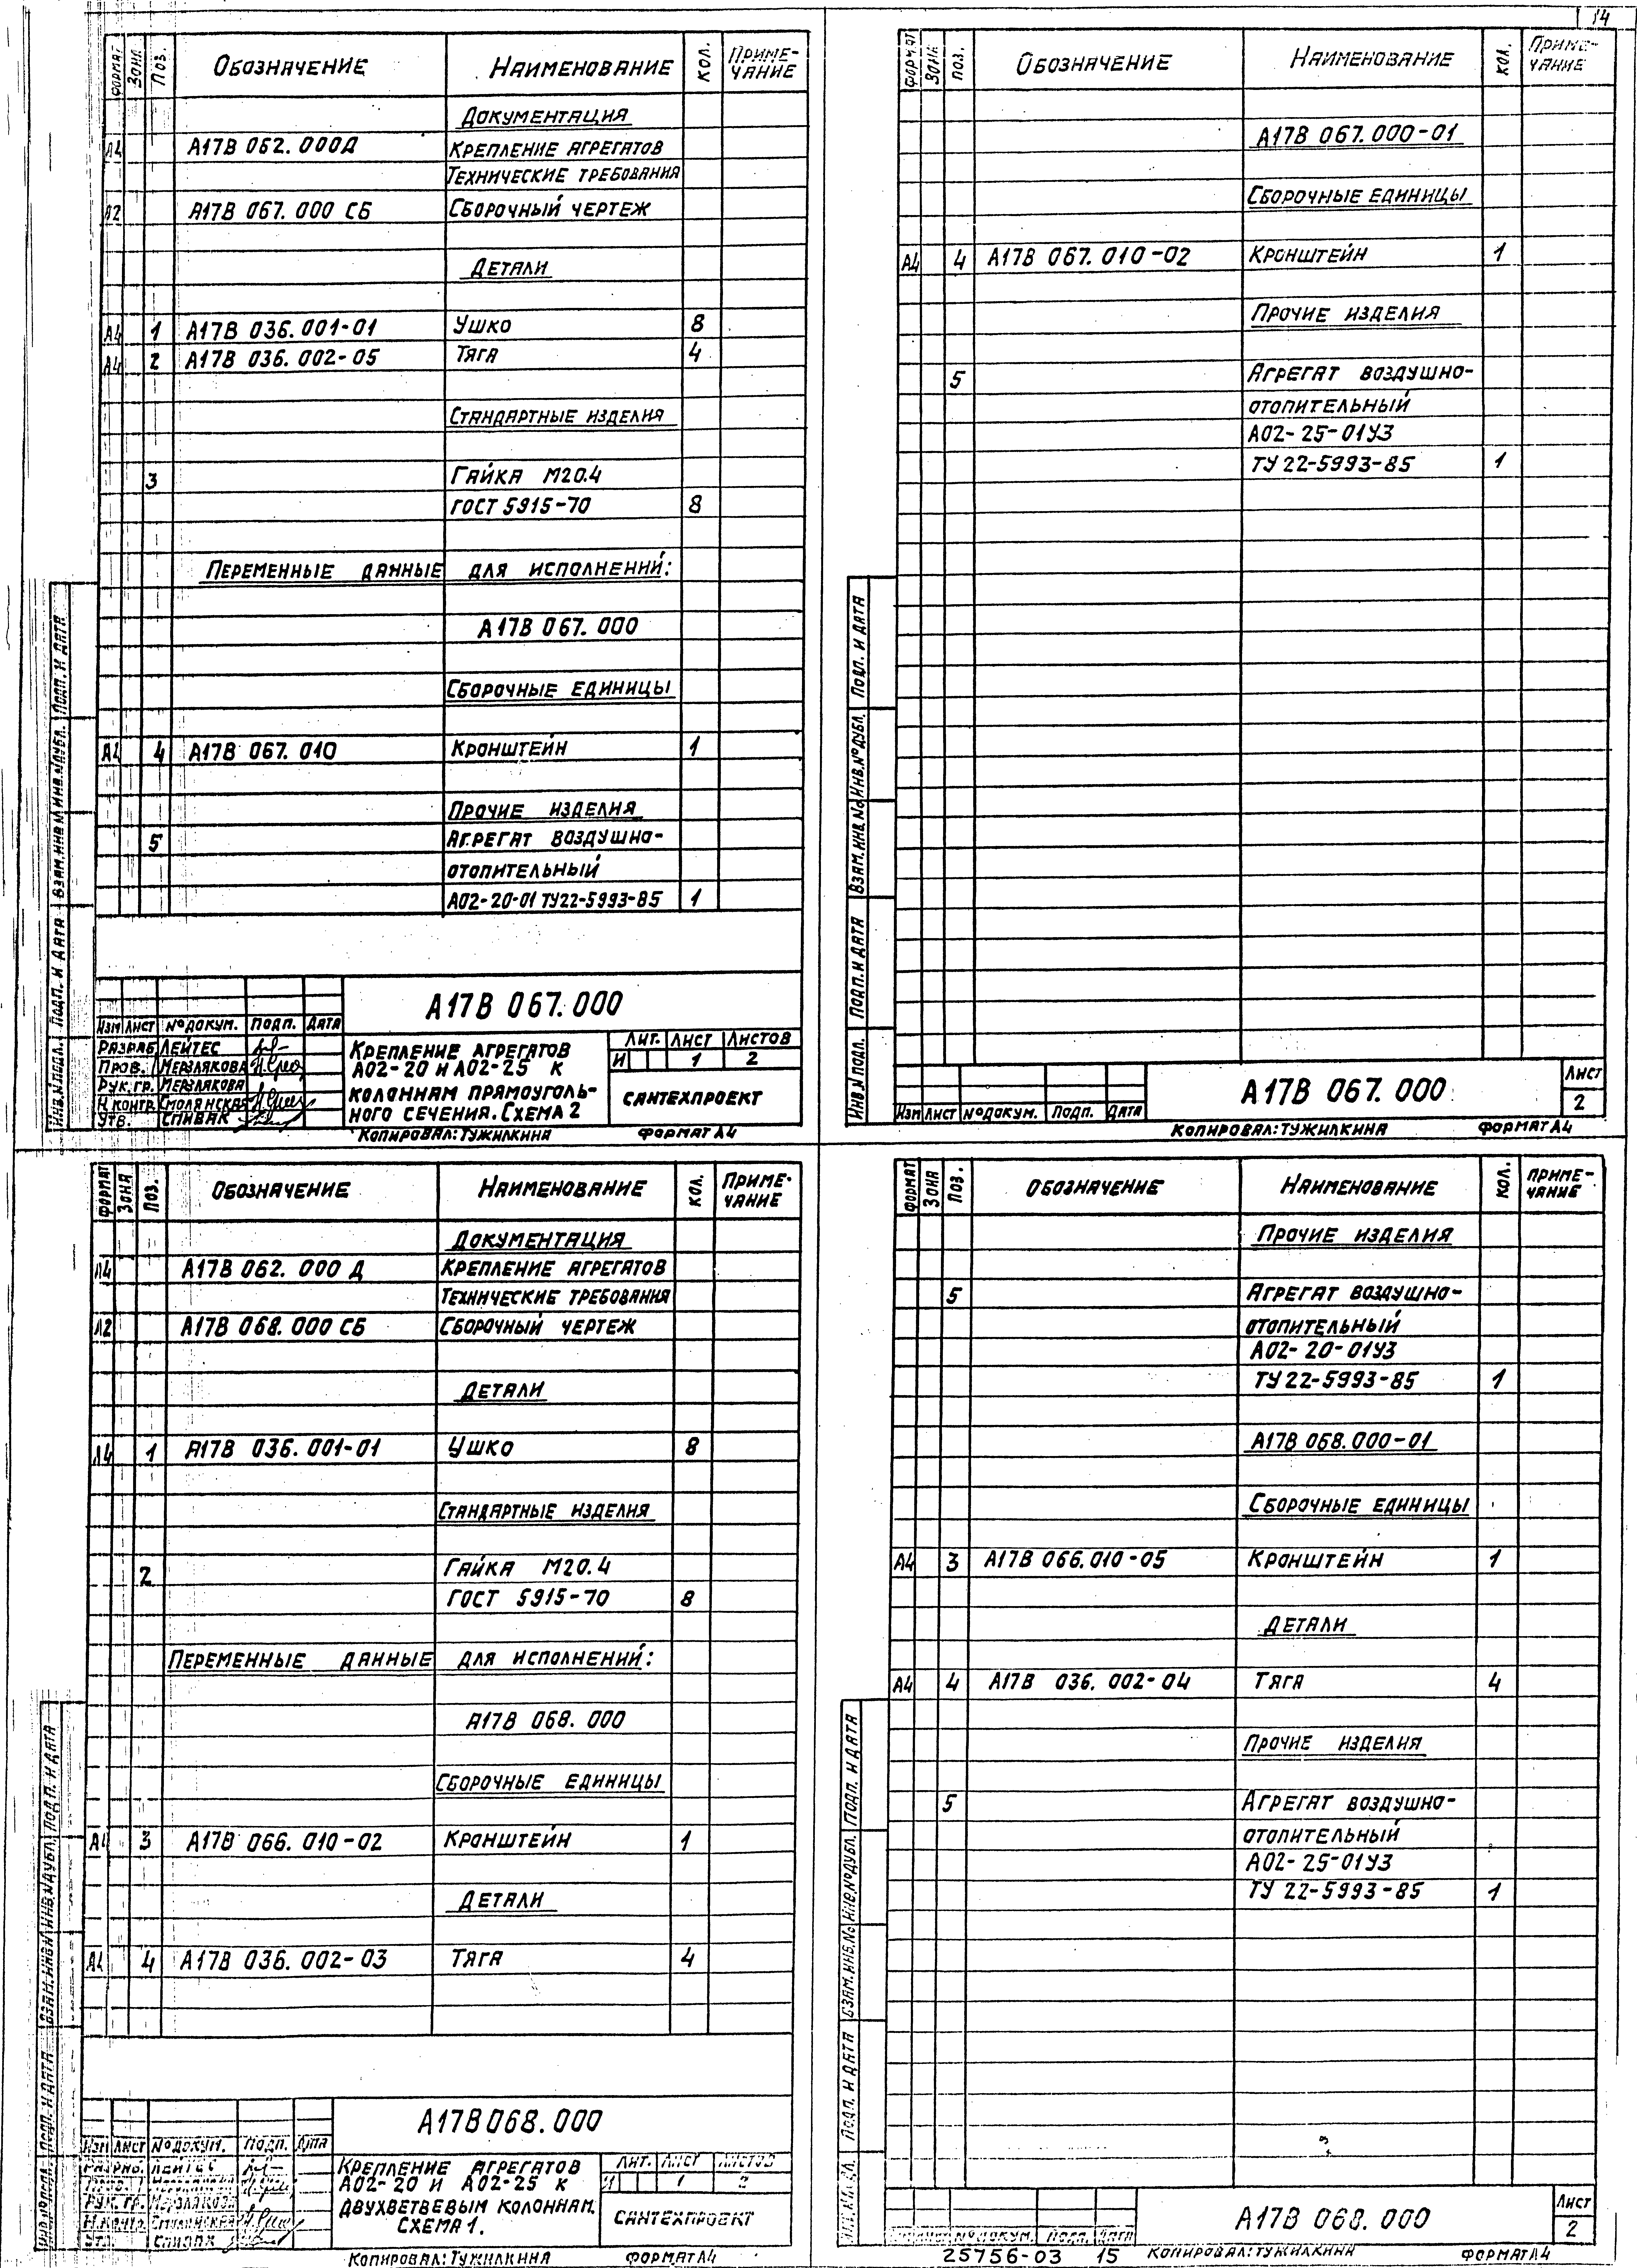 14
ФОРМАТ ЗОНА ПОЗ. ОБОЗНАЧЕНИЕ НАИМЕНОВАНИЕ КОЛ. ПРИМЕ-
ЧАНИЕ
ДОКУМЕНТАЦИЯ
А4 А17В 062.000Д КРЕПЛЕНИЕ АГРЕГАТОВ
ТЕХНИЧЕСКИЕ ТРЕБОВАНИЯ
А2 А17В 067.000 СБ СБОРОЧНЫЙ ЧЕРТЕЖ
ДЕТАЛИ
А4 1 А17В 036.001-01 УШКО 8
А4 2 А17В 036.002-05 ТЯГА 4
СТАНДАРТНЫЕ ИЗДЕЛИЯ
3 ГАЙКА М20.4
ГОСТ 5915-70 8
ПЕРЕМЕННЫЕ ДАННЫЕ ДЛЯ ИСПОЛНЕНИЙ:
А17В 067.000
СБОРОЧНЫЕ ЕДИНИЦЫ
А4 4 А17В 067.010 КРОНШТЕЙН 1
ПРОЧИЕ ИЗДЕЛИЯ
5 АГРЕГАТ ВОЗДУШНО-
ОТОПИТЕЛЬНЫЙ
А02-20-01 ТУ22-5993-85 1
ИНВ.N ПОДЛ. ПОДП. И ДАТА ВЗАМ.ИНВ.N ИНВ.N ДУБЛ. ПОДП. И ДАТА
А17В 067.000
ИЗМ ЛИСТ №ДОКУМ. ПОДП. ДАТА
РАЗРАБ ЛЕЙТЕС
ПРОВ. МЕРЗЛЯКОВА
РУК.ГР. МЕРЗЛЯКОВА
Н.КОНТР. СМОЛЯНСКАЯ
УТВ. СПИВАК
КРЕПЛЕНИЕ АГРЕГАТОВ
А02-20 И А02-25 К
КОЛОННАМ ПРЯМОУГОЛЬ-
НОГО СЕЧЕНИЯ. СХЕМА 2
ЛИТ. ЛИСТ ЛИСТОВ
И 1 2
САНТЕХПРОЕКТ
КОПИРОВАЛ: ТУЖИЛКИНА ФОРМАТ А4
ФОРМАТ ЗОНА ПОЗ. ОБОЗНАЧЕНИЕ НАИМЕНОВАНИЕ КОЛ. ПРИМЕ-
ЧАНИЕ
А17В 067.000-01
СБОРОЧНЫЕ ЕДИНИЦЫ
А4 4 А17В 067.010-02 КРОНШТЕЙН 1
ПРОЧИЕ ИЗДЕЛИЯ
5 АГРЕГАТ ВОЗДУШНО-
ОТОПИТЕЛЬНЫЙ
А02-25-01У3
ТУ 22-5993-85 1
ИНВ.N ПОДЛ. ПОДП. И ДАТА ВЗАМ.ИНВ.№ ИНВ.№ДУБЛ. ПОДП. И ДАТА
ИЗМ ЛИСТ №ДОКУМ. ПОДП. ДАТА
А17В 067.000
ЛИСТ
2
КОПИРОВАЛ: ТУЖИЛКИНА ФОРМАТ А4
ФОРМАТ ЗОНА ПОЗ. ОБОЗНАЧЕНИЕ НАИМЕНОВАНИЕ КОЛ. ПРИМЕ-
ЧАНИЕ
ДОКУМЕНТАЦИЯ
А4 А17В 062.000 Д КРЕПЛЕНИЕ АГРЕГАТОВ
ТЕХНИЧЕСКИЕ ТРЕБОВАНИЯ
А2 А17В 068.000 СБ СБОРОЧНЫЙ ЧЕРТЕЖ
ДЕТАЛИ
А4 1 А17В 036.001-01 УШКО 8
СТАНДАРТНЫЕ ИЗДЕЛИЯ
2 ГАЙКА М20.4
ГОСТ 5915-70 8
ПЕРЕМЕННЫЕ ДАННЫЕ ДЛЯ ИСПОЛНЕНИЙ:
А17В 068.000
СБОРОЧНЫЕ ЕДИНИЦЫ
А4 3 А17В 066.010-02 КРОНШТЕЙН 1
ДЕТАЛИ
А4 4 А17В 036.002-03 ТЯГА 4
ПОДП. И ДАТА ВЗАМ.ИНВ.N ИНВ.N ДУБЛ. ПОДП. И ДАТА
А17В068.000
ИЗМ ЛИСТ №ДОКУМ. ПОДП. ДАТА
РАЗРАБ. ЛЕЙТЕС
РУК.ГР. МЕРЗЛЯКОВА
Н.КОНТР. СМОЛЯНСКАЯ
УТВ. СПИВАК
КРЕПЛЕНИЕ АГРЕГАТОВ
А02-20 И А02-25 К
ДВУХВЕТВЕВЫМ КОЛОННАМ.
СХЕМА 1.
ЛИТ. ЛИСТ ЛИСТОВ
И 1 2
САНТЕХПРОЕКТ
КОПИРОВАЛ: ТУЖИЛКИНА ФОРМАТ А4
ФОРМАТ ЗОНА ПОЗ. ОБОЗНАЧЕНИЕ НАИМЕНОВАНИЕ КОЛ. ПРИМЕ-
ЧАНИЕ
ПРОЧИЕ ИЗДЕЛИЯ
5 АГРЕГАТ ВОЗДУШНО-
ОТОПИТЕЛЬНЫЙ
А02-20-01У3
ТУ 22-5993-85 1
А17В 068.000-01
СБОРОЧНЫЕ ЕДИНИЦЫ
А4 3 А17В 066.010-05 КРОНШТЕЙН 1
ДЕТАЛИ
А4 4 А17В 036.002-04 ТЯГА 4
ПРОЧИЕ ИЗДЕЛИЯ
5 АГРЕГАТ ВОЗДУШНО-
ОТОПИТЕЛЬНЫЙ
А02-25-01У3
ТУ 22-5993-85 1
ПОДП. И ДАТА ВЗАМ.ИНВ.№ ИНВ.№ДУБЛ. ПОДП. И ДАТА
№ДОКУМ. ПОДП. ДАТА
А17В 068.000
ЛИСТ
2
25756-03 15 КОПИРОВАЛ: ТУЖИЛКИНА ФОРМАТ А4